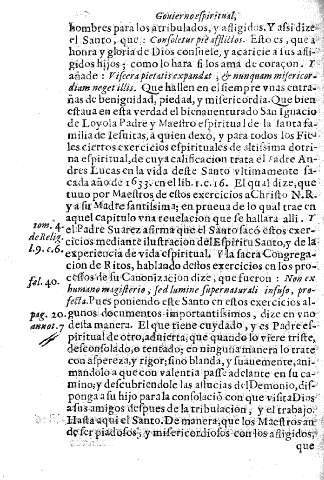 Gouierno espiritual,
hombres para los atribulados, y afligidos. Y assi dize
el Santo, que: Consoletur pie afflictos. Esto es, que a
honra y gloria de Dios consuele, y acaricie a sus afli-
gidos hijos; como lo hara si los ama de coraçon. Y
añade: Viscera pietatis expandat, & nunquam misericor-
diam neget illis. Que hallen en el siempre vnas entra-
ñas de benignidad, piedad, y misericordia. Que bien
estaua en esta verdad el bienauenturado San Ignacio
de Loyola Padre y Maestro espiritual de la santa fa-
milia de Iesuitas, a quien dexò, y para todos los Fie-
les ciertos exercicios espirituales de altissima dotri-
na espiritual, de cuya calificacion trata el Padre An-
dres Lucas en la vida deste Santo vltimamente sa-
cada año de 1633. en el lib. 1. c. 16. El qual dize, que
tuuo por Maestros de estos exercicios a Christo N. R.
y a su Madre santissima; en prueua de lo qual trae en
aquel capitulo vna reuelacion que se hallara alli. Y
tom. 4.
de Relig.
l. 9. c. 6.
el Padre Suarez afirma que el Santo sacó estos exer-
cicios mediante ilustracion del Espiritu Santo, y de la
experiencia de vida espiritual. Y la sacra Congrega-
cion de Ritos, hablando de los exercicios en los pro-
fol. 40.
cessos de su Canonizacion dize, que fueron: Non ex
humano magisterio, sed lumine supernaturali infuso, pro-
fecta. Pues poniendo este Santo en estos exercicios al-
pag. 20.
annot. 7
gunos documentos importantissimos, dize en vno
desta manera. El que tiene cuydado, y es Padre es-
piritual de otro, aduierta, que quando lo viere triste,
desconsolado, o tentado; en ninguna manera lo trate
con aspereza, y rigor; sino blanda, y suauemente, ani-
mandolo a que con valentia passe adelante en su ca-
mino; y descubriendole las astucias del Demonio, dis-
ponga a su hijo para la consolació con que visita Dios
a sus amigos despues de la tribulacion, y el trabajo.
Hasta aqui el Santo. De manera, que los Maestros an
de ser piadosos, y misericordiosos con los afligidos,
que